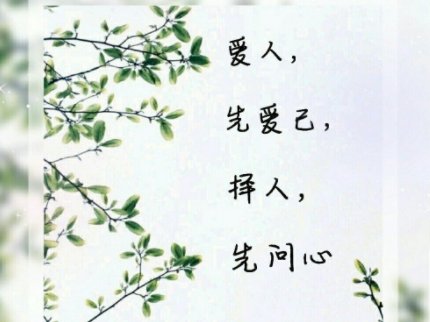 爱人，
先爱己，
择人，
先问心